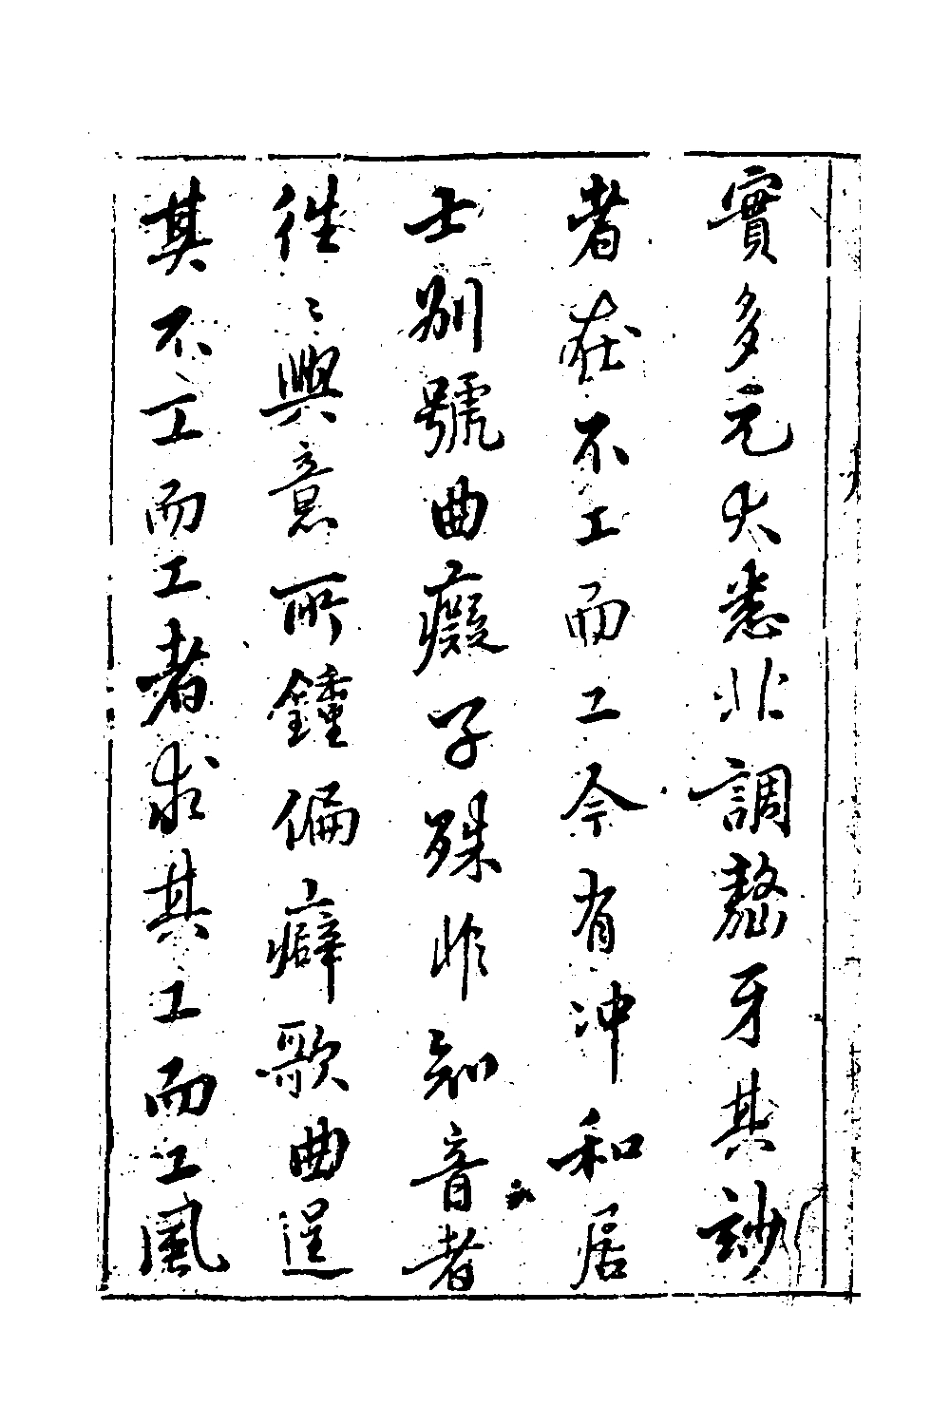 實多元大悉非調聱牙其玅
者在不工而工今有冲和居
士别號曲癡子殊非知音者
徃〻興意所鍾偏癖歌曲逞
其不工而工者求其工而工風